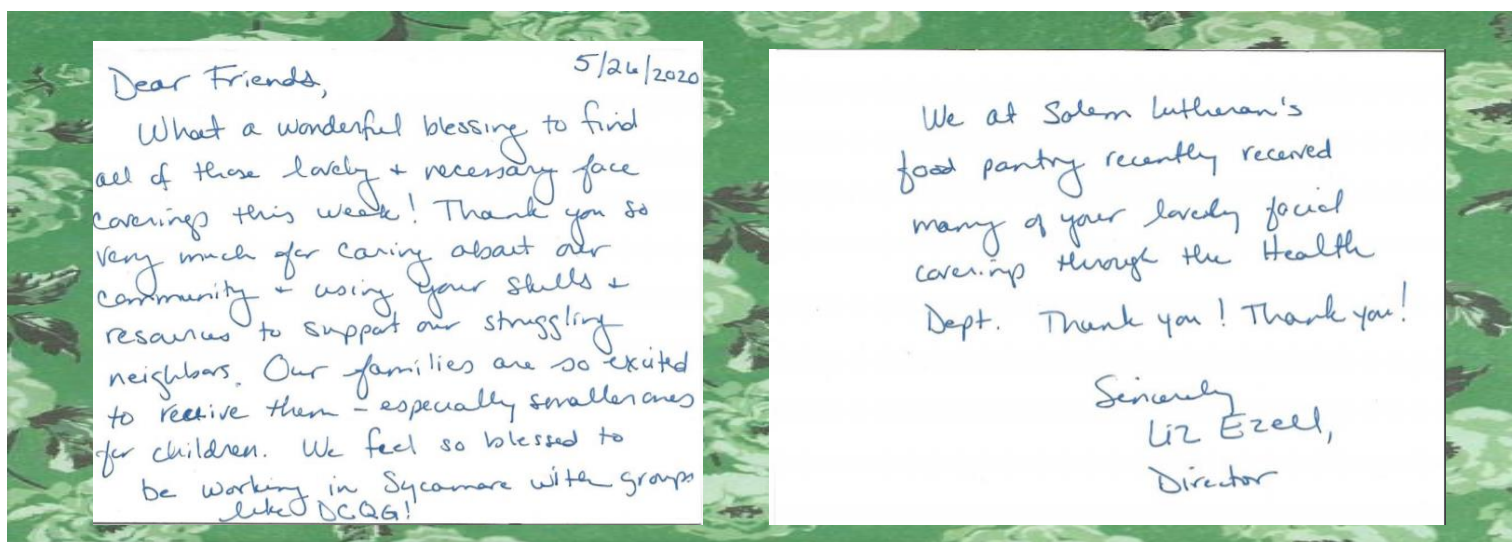 5/26/2020
Dear Friends,
What a wonderful blessing to find
all of those lovely + necessary face
coverings this week! Thank you so
very much for caring about our
community + using your skills +
resources to support our struggling
neighbors. Our families are so excited
to receive them - especially smaller ones
for children. We feel so blessed to
be working in Sycamore with groups
like DCQG!
We at Salem Lutheran's
food pantry recently received
many of your lovely facial
coverings through the Health
Dept. Thank you! Thank you!
Sincerely
Liz Ezell,
Director